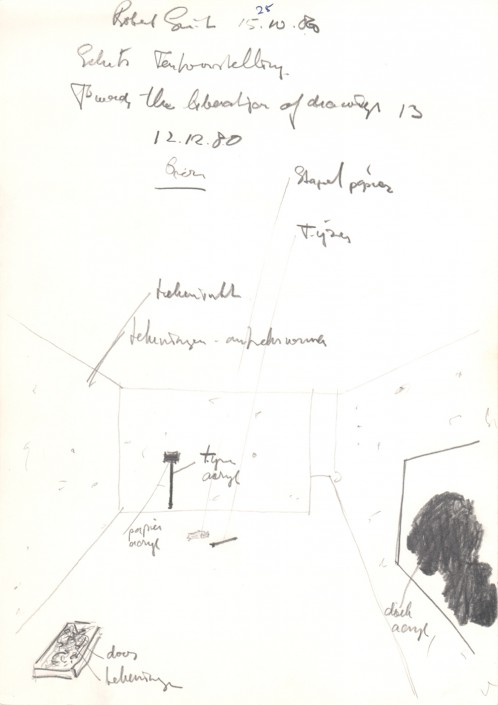 Robert Smit 15.10.80
25
Schets Tentoonstelling.
Towards the liberation of drawings 13
12.12.80
Stapel papier
IJzer
tekeningen -
ijzer
acryl
papier
acryl
doek
acryl
doos
tekeningen